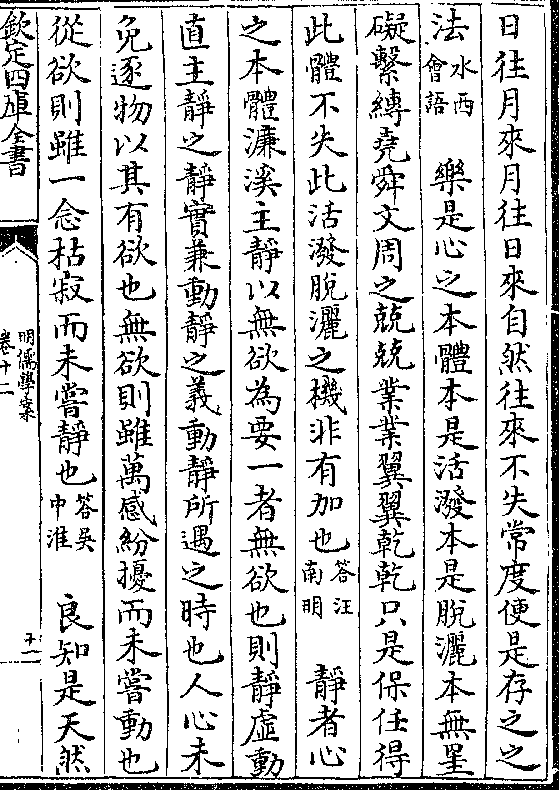 日往月來月往日來自然往來不失常度便是存之之
法水西會語　樂是心之本體本是活潑本是脫灑本無罣
礙繫縛堯舜文周之兢兢業業翼翼乾乾只是保任得
此體不失此活潑脫灑之機非有加也答汪南明　靜者心
之本體濂溪主靜以無欲為要一者無欲也則靜虛動
直主靜之靜實兼動靜之義動靜所遇之時也人心未
免逐物以其有欲也無欲則雖萬感紛擾而未嘗動也
從欲則雖一念枯寂而未嘗靜也答吳中淮　良知是天然
欽定四庫全書
明儒學案
卷十二
十一